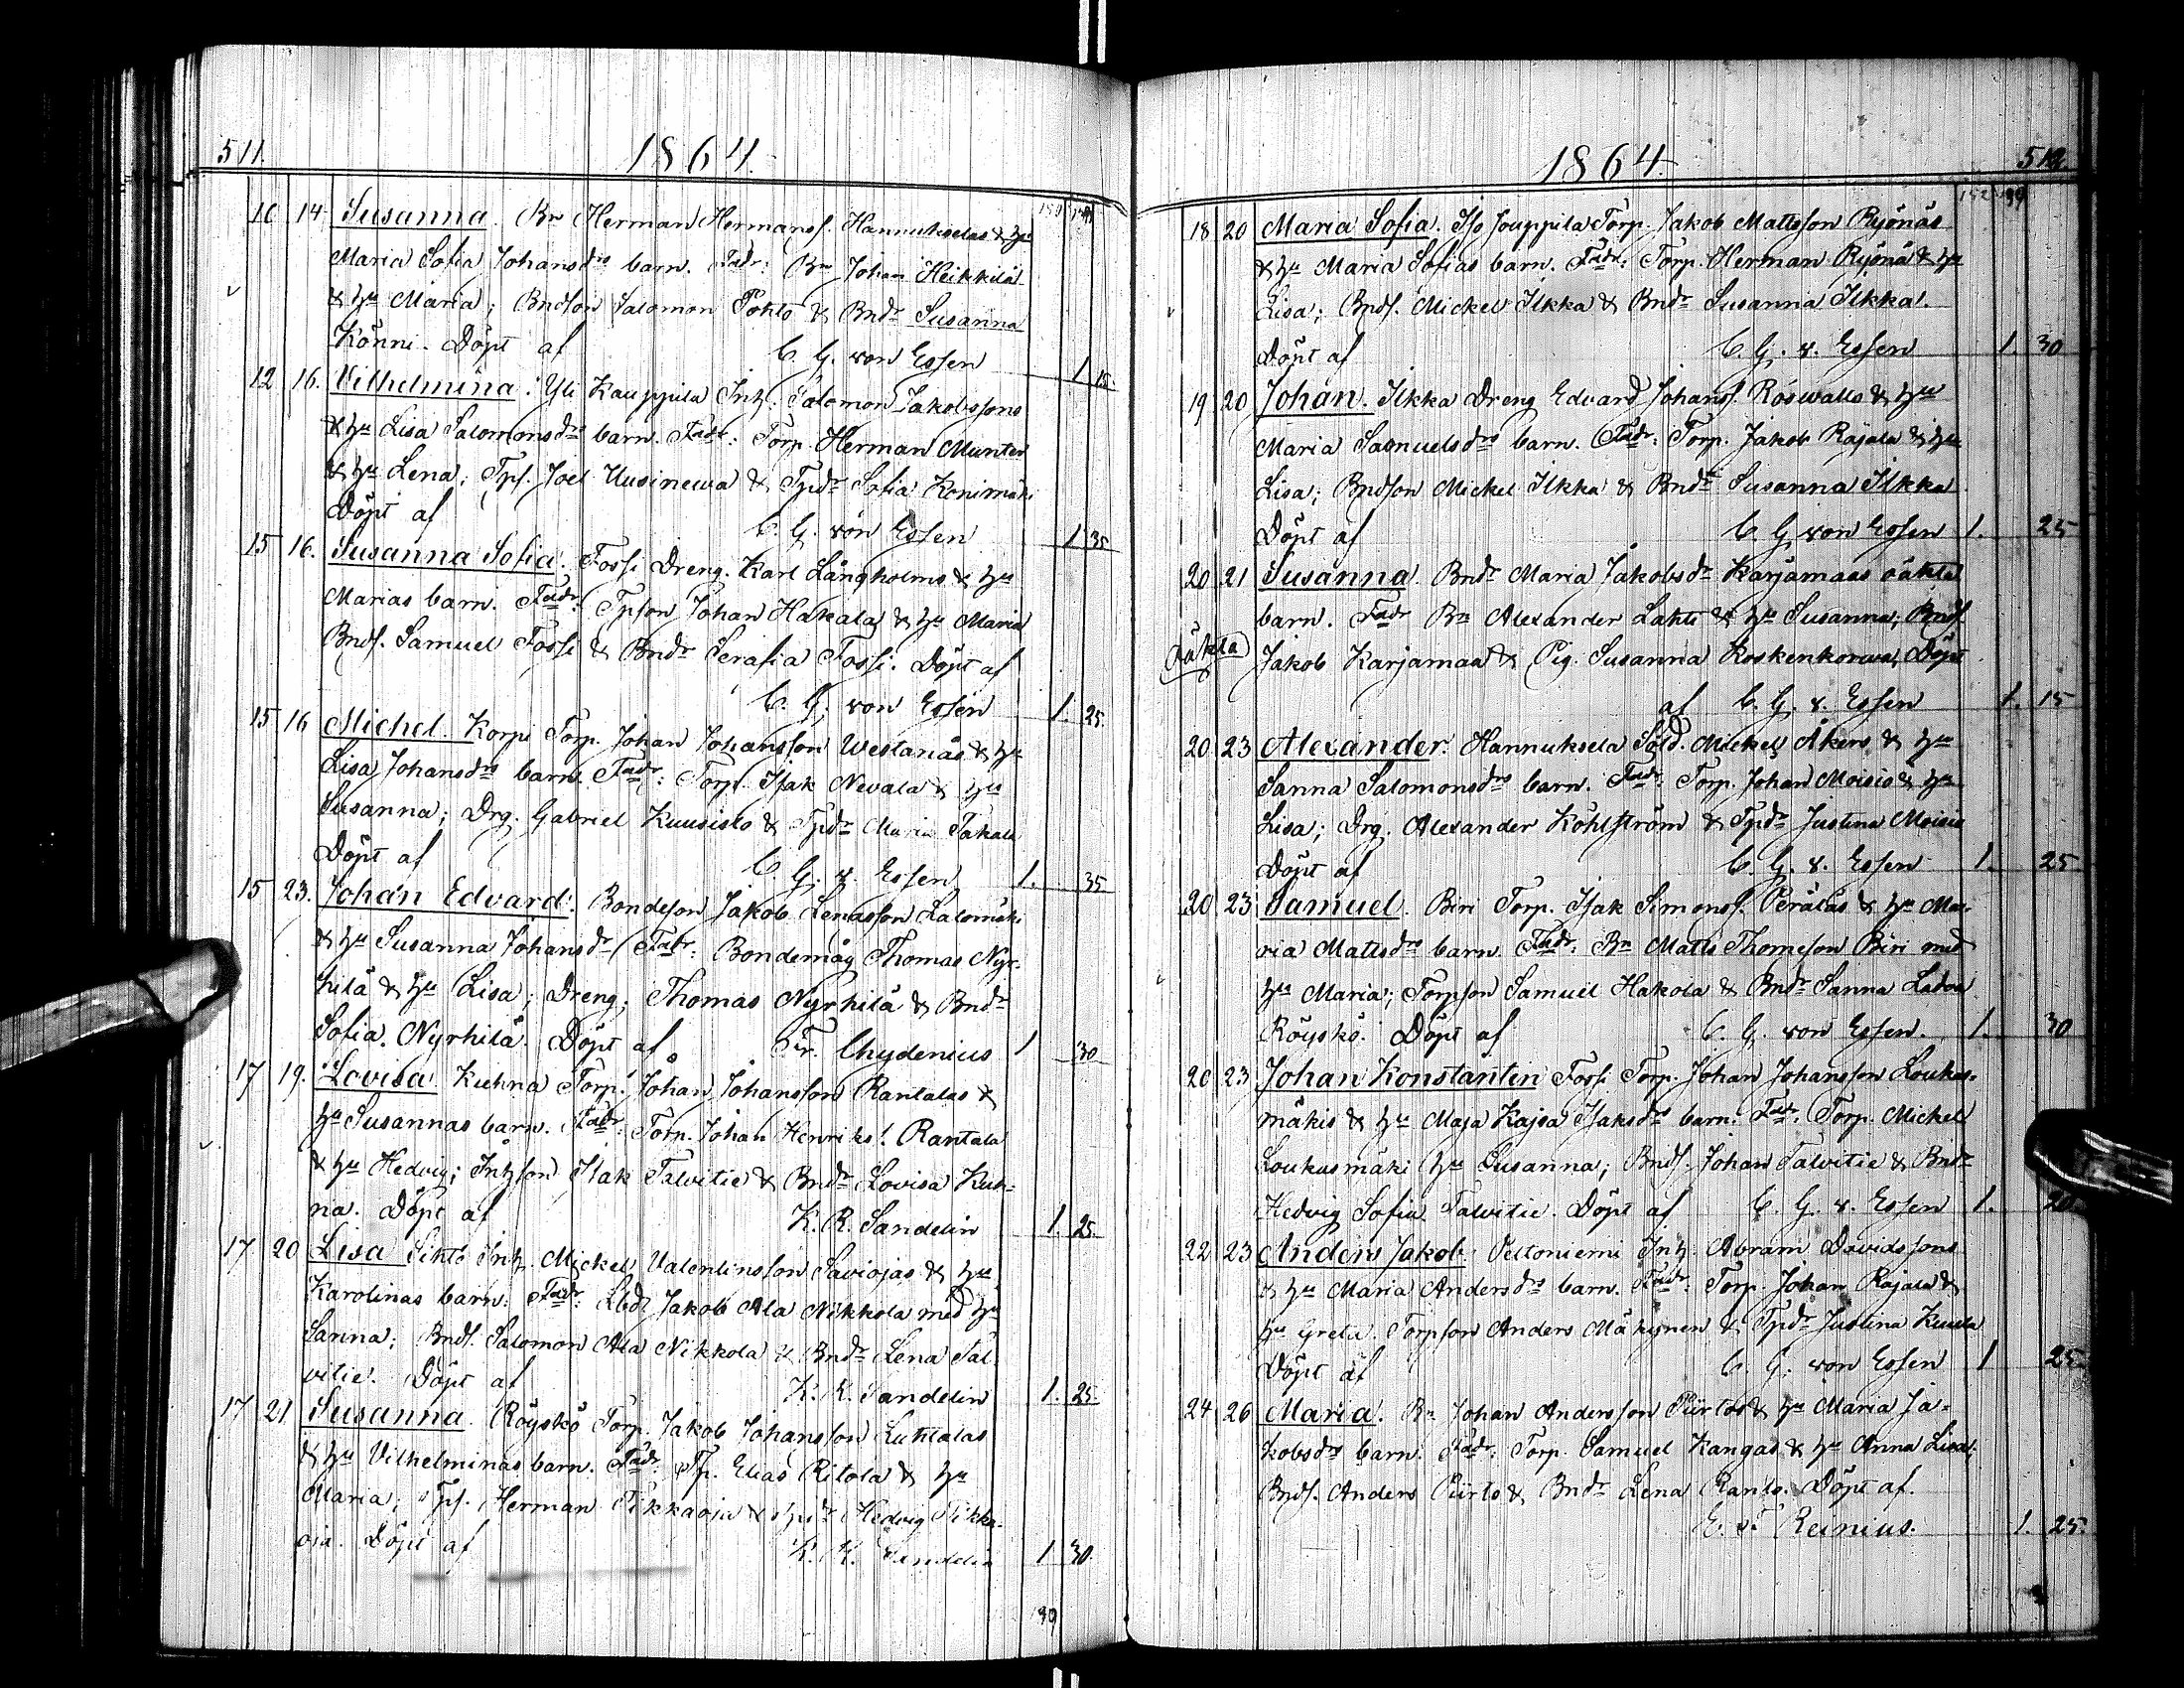 511.
1864.
10 14. Susanna. Bn Herman Hermansf. Hannukselas & Hu
Maria Sofia Johansdrs barn. Fadr: Bn Johan Heikkilä
& Hu Maria; Bndson Salomon Pohto & Bndr Susanna
Könni. Döpt af C. G. von Essen 1 15.
12 16. Vilhelmina. Yli Kauppila Inh. Salomon Jakobssons
& Hu Lisa Salomonsdrs barn. Fadr: Torp. Herman Munter
& Hu Lena; Tpf. Joel Uusinewa & Tpdr Sofia Konimäki
Döpt af C. G. von Essen 1 35
15 16. Susanna Sofia. Fossi Dreng. Karl Långholms & Hu
Marias barn. Fadr: Tpson Johan Hakala & Hu Maria
Bndf. Samuel Fossi & Bndr Serafia Fossi. Döpt af
C. G. von Essen 1. 25.
15 16 Michel. Korpi Torp. Johan Johansson Westanäs & Hu
Lisa Johansdrs barn. Fadr: Torp. Isak Nevala & Hu
Susanna; Drg. Gabriel Kuusisto & Tpdr Maria Takala
Döpt af C. G. v. Essen 1. 35
15 23. Johan Edvard. Bondeson Jakob Lenasson Salomäki
& Hu Susanna Johansdr Fadr: Bondemåg Thomas Nyr-
hilä & Hu Lisa; Dreng. Thomas Nyrhilä & Bndr
Sofia Nyrhilä. Döpt af Fr. Chydenius 1 30
17 19. Lovisa. Kuhna Torp. Johan Johansson Rantalas &
Hu Susannas barn. Fadr: Torp. Johan Henriksf. Rantala
& Hu Hedvig; Inhson Isak Talvitie & Bndr Lovisa Kuh-
na. Döpt af K. R. Sandelin 1. 25.
17 20 Lisa Sihto Inh. Mickel Valentinsson Saviojas & Hu
Karolinas barn. Fadr: Lbdr Jakob Ala Nikkola med Hu
Sanna; Bndf. Salomon Ala Nikkola & Bndr Lena Tal-
vitie. Döpt af K. R. Sandelin 1. 25.
17 21 Susanna. Röyskö Torp. Jakob Johansson Luhtalas
& Hu Vilhelminas barn. Fadr: Tp. Elias Ritola & Hu
Maria; Tpf. Herman Tikkaoja & Tpdr Hedvig Tikka-
oja. Döpt af K. R. Sandelin 1 30.
39
1864.
512
18 20 Maria Sofia. Iso Jouppila Torp. Jakob Mattsson Ryönäs
& Hu Maria Sofias barn. Fadr: Torp. Herman Ryönä & Hu
Lisa; Bndf. Mickel Ilkka & Bndr Susanna Ilkka.
Döpt af C. G. v. Essen 1. 30
19 20 Johan. Ilkka Dreng Edvard Johansf. Roswalls & Hu
Maria Samuelsdrs barn. Fadr: Torp. Jakob Rajala & Hu
Lisa; Bndson Mickel Ilkka & Bndr Susanna Ilkka
Döpt af C. G. von Essen 1. 25
20 21 Susanna. Bndr Maria Jakobsdr Karjamaas oäkta
barn. Fadr Bn Alexander Lahti & Hu Susanna; Bndf.
(oäkta) Jakob Karjamaa & Pig. Susanna Koskenkorwa. Döpt
af C. G. v. Essen 1. 15
20 23 Alexander. Hannuksela Sold. Mickel Åkers & Hu
Sanna Salomonsdrs barn. Fadr: Torp. Johan Moisio & Hu
Lisa; Drg. Alexander Kohlström & Tpdr Justina Moisio
Döpt af C. G. v. Essen 1. 25.
20 23 Samuel. Biri Torp. Isak Simonsf. Peräläs & Hu Ma-
ria Mattsdrs barn. Fadr: Bn Matts Thomeson Biri med
Hu Maria; Torpson Samuel Hakola & Bndr Sanna
Röyskö. Döpt af C. G. von Essen. 1. 30
20 23 Johan Konstantin Fossi Torp. Johan Johansson Loukas-
mäkis & Hu Maja Kajsa Isaksdrs barn. Fadr. Torp. Mickel
Loukusmäki Hu Susanna; Bndf. Johan Talvitie & Bndr
Hedvig Sofia Talvitie. Döpt af C. G. v. Essen 1. 20
22 23 Anders Jakob. Peltoniemi Inh. Abram Davidssons
& Hu Maria Andersdrs barn. Fadr: Torp. Johan Rajala &
Hu Greta. Torpson Anders Mäkynen & Tpdr Justina Kuula
Döpt af C. G. von Essen 1 25
24 26 Maria. Bn Johan Andersson Piirtos & Hu Maria Ja-
kobsdrs barn. Fadr: Torp. Samuel Kangas & Hu Anna Lisa;
Bndf. Anders Piirto & Bndr Lena Ranto. Döpt af.
Reinius. 1. 25.